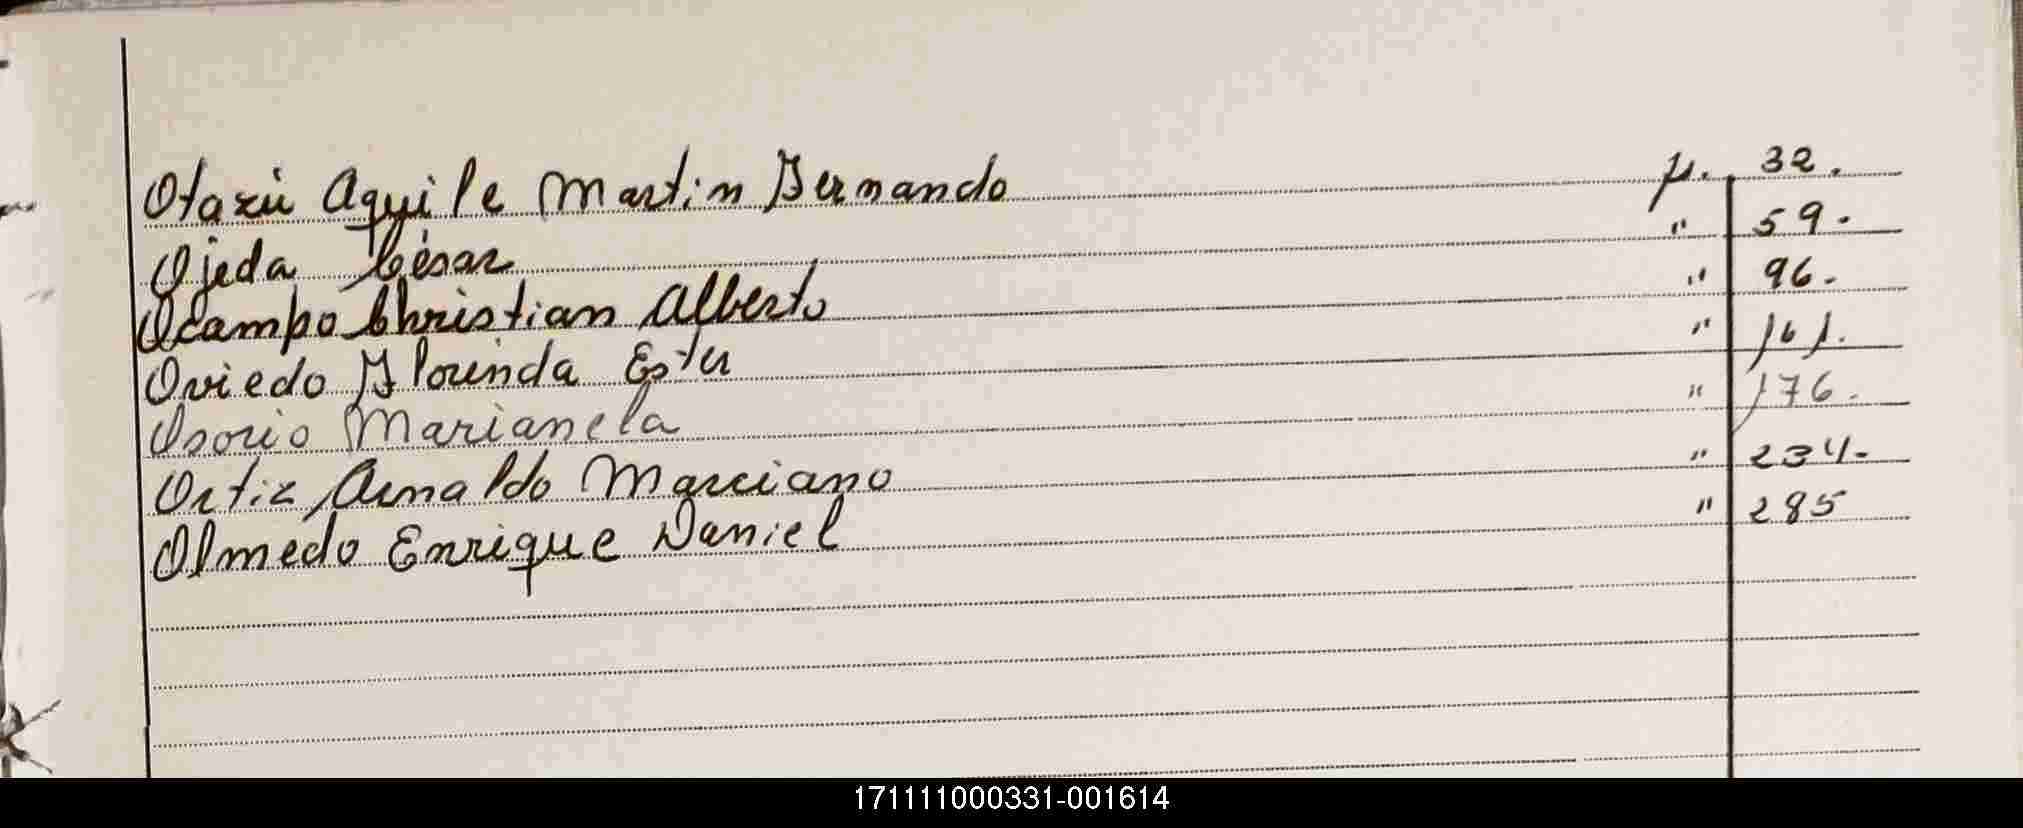 Otazú Aquile Martin Fernando p. 32.
Ojeda César " 59.
Ocampo Christian Alberto " 96.
Oviedo Florinda Ester " 161.
Osorio Marianela " 176.
Ortiz Arnaldo Marciano " 234.
Olmedo Enrique Daniel " 285
171111000331-001614